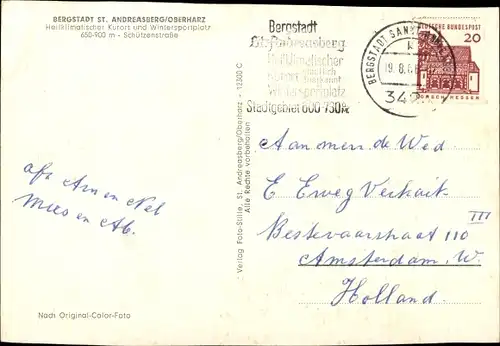 BERGSTADT ST. ANDREASBERG/OBERHARZ
Heilklimatischer Kurort und Wintersportplatz
650-900 m - Schützenstraße
Bergstadt
St. Andreasberg
Heilklimatischer
Kurort
Wintersportplatz
Stadtgebiet 600-900 m
BERGSTADT SANKT
19.8.66
342
DEUTSCHE BUNDESPOST
20
LORSCH HESSEN
Verlag Foto-Stille, St. Andreasberg/Oberharz - 12300 C
Alle Rechte vorbehalten
afz
en
Mies en Ab.
Aan mevr. de Wed
E Eweg Verkait-
Bestevaerstraat 110 III
Amsterdam. W.
Holland.
Nach Original-Color-Foto